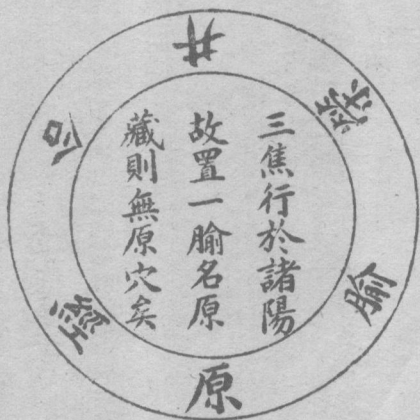 井
滎
腧
原
經
合
三焦行於諸陽
故置一腧名原
藏則無原穴矣